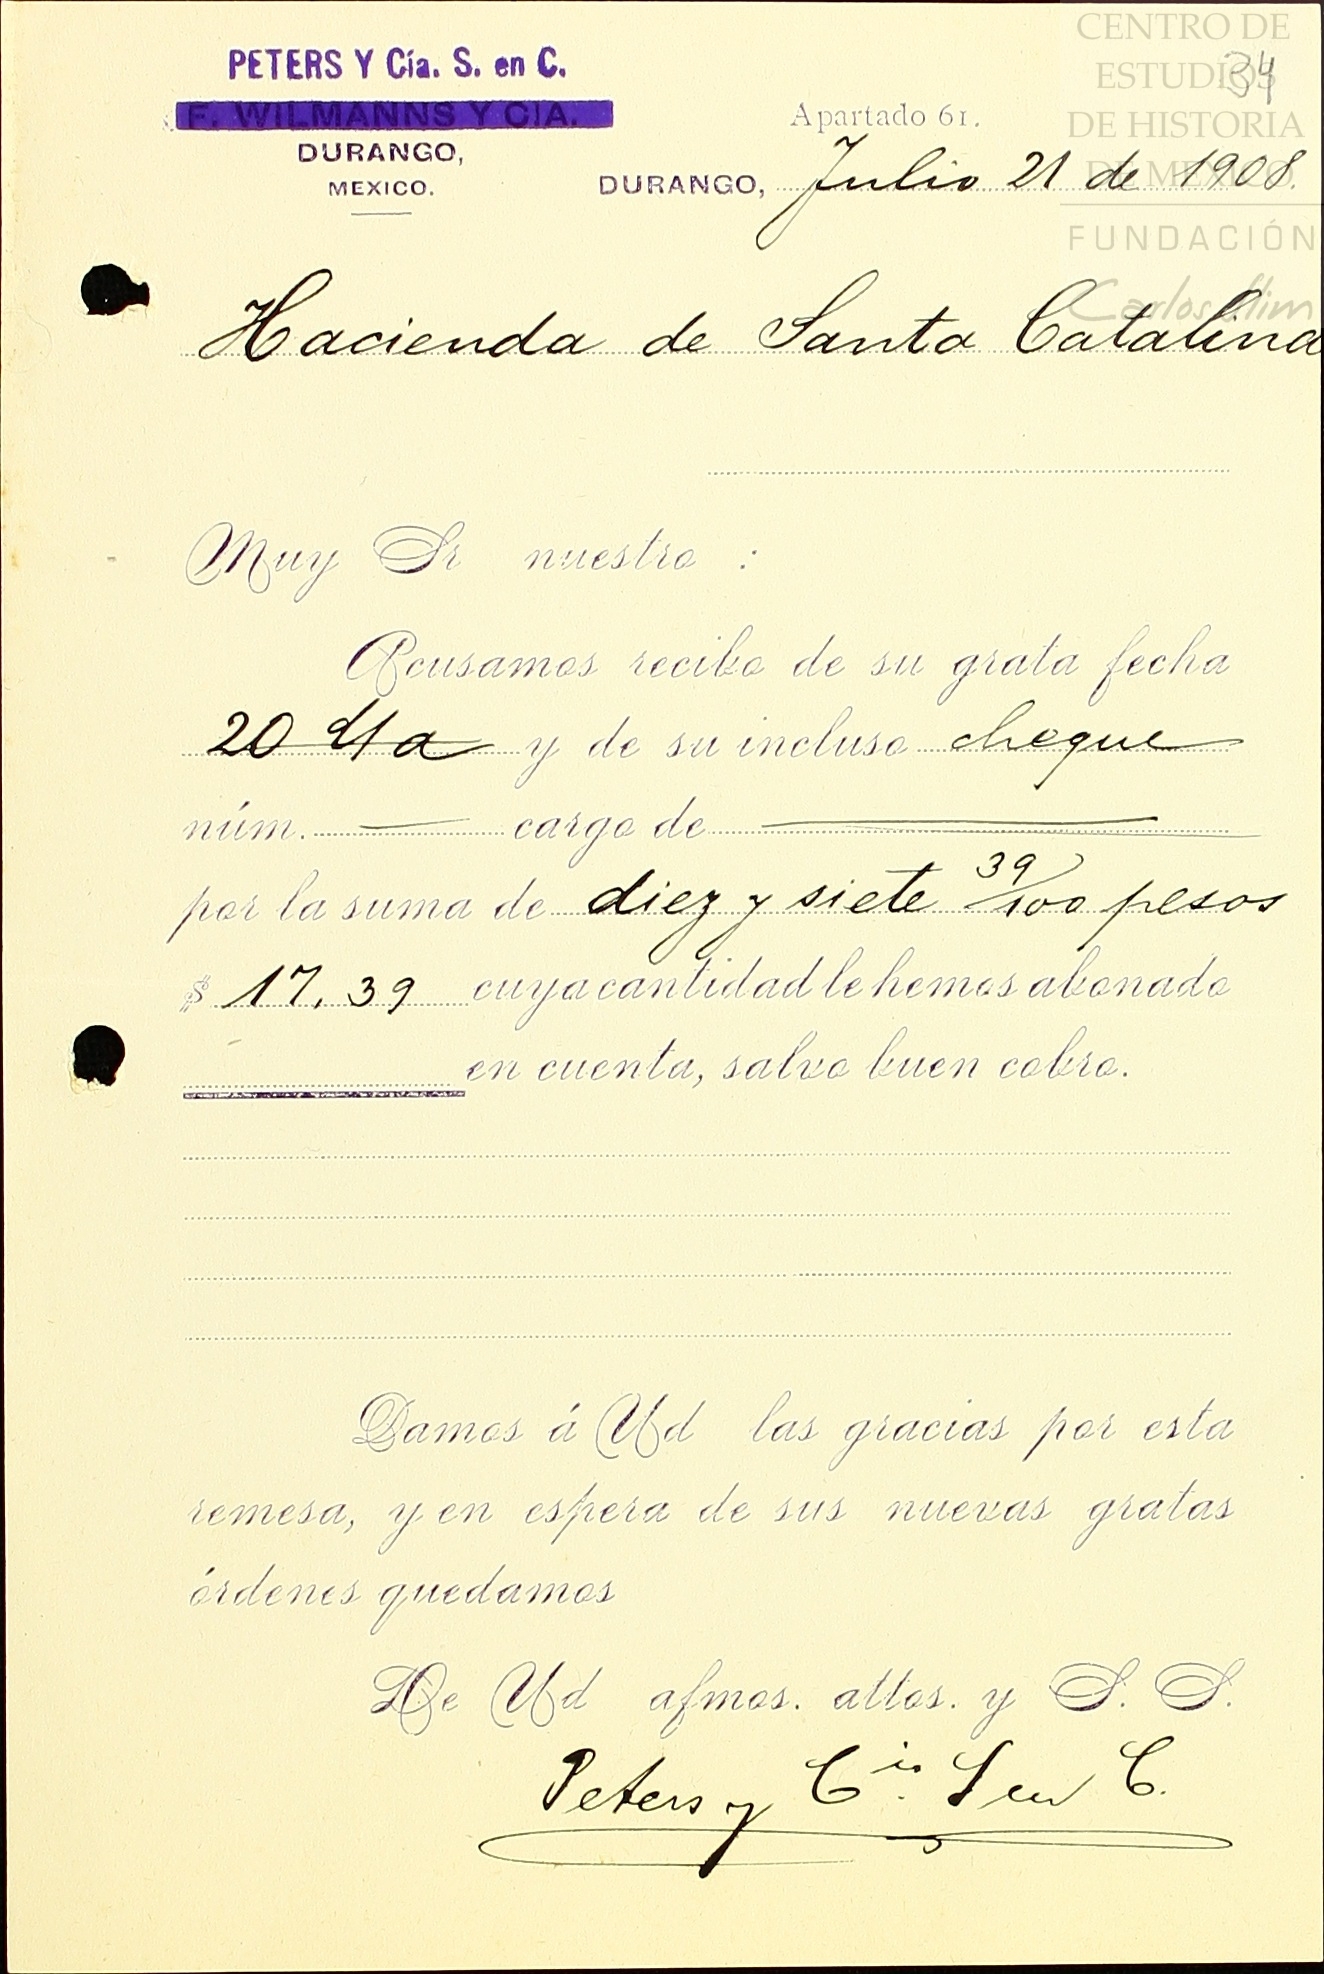 CENTRO DE
ESTUDIOS
DE HISTORIA
DE MEXICO
FUNDACIÓN
Carlos Slim
34
PETERS Y Cía. S. en C.
F. WILMANNS Y CIA.
DURANGO,
MEXICO.
Apartado 61.
DURANGO, Julio 21 de 1908.
Hacienda de Santa Catalina
Muy Sr nuestro :
Acusamos recibo de su grata fecha
20 y de su incluso cheque
núm. — cargo de —
por la suma de diez y siete 39/100 pesos
$ 17.39 cuya cantidad le hemos abonado
en cuenta, salvo buen cobro.
Damos á Ud las gracias por esta
remesa, y en espera de sus nuevas gratas
órdenes quedamos
De Ud afmos. attos. y S. S.
Peters y Cia. S en C.